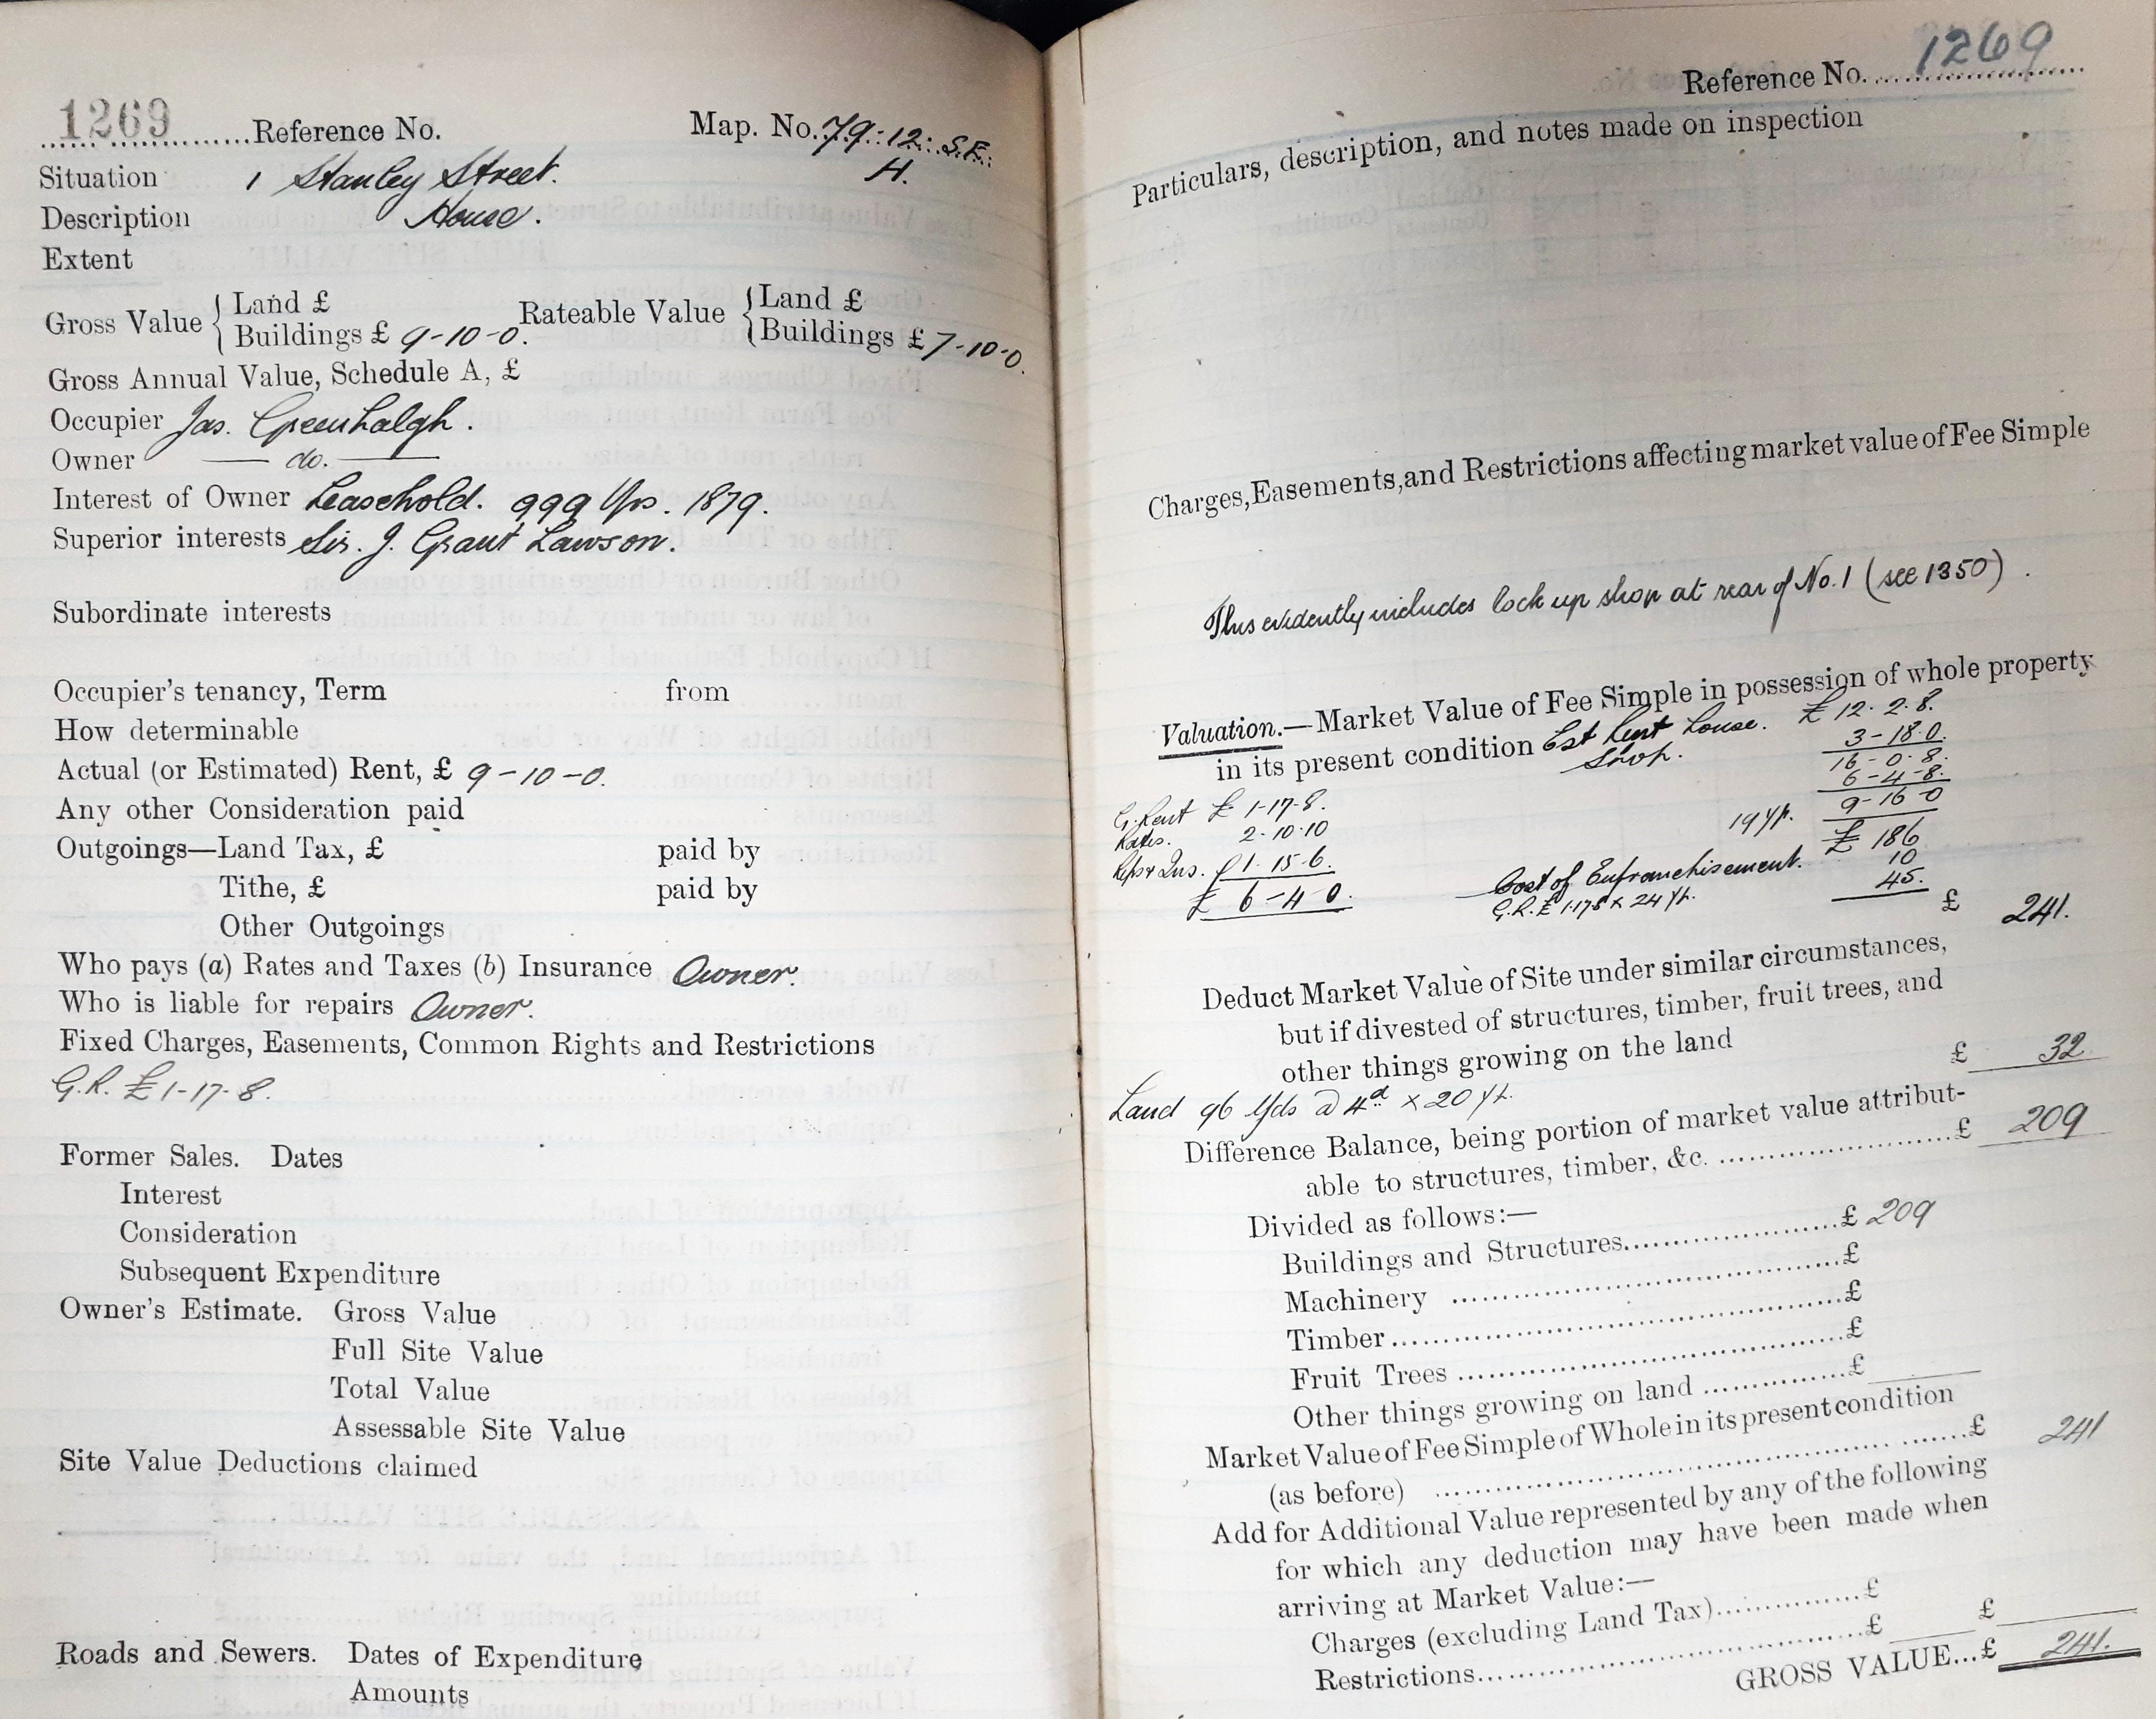 1269 Reference No. Map. No. 79:12: S.E:
H.
Situation 1 Stanley Street.
Description House.
Extent
Gross Value { Land £
Buildings £ 9-10-0. Rateable Value { Land £
Buildings £ 7-10-0.
Gross Annual Value, Schedule A, £
Occupier Jas. Greenhalgh.
Owner — do. —
Interest of Owner Leasehold. 999 Yrs. 1879.
Superior interests Sir. J. Grant Lawson.
Subordinate interests
Occupier's tenancy, Term from
How determinable
Actual (or Estimated) Rent, £ 9-10-0.
Any other Consideration paid
Outgoings—Land Tax, £ paid by
Tithe, £ paid by
Other Outgoings
Who pays (a) Rates and Taxes (b) Insurance Owner.
Who is liable for repairs Owner.
Fixed Charges, Easements, Common Rights and Restrictions
G.R. £1-17-8.
Former Sales. Dates
Interest
Consideration
Subsequent Expenditure
Owner's Estimate. Gross Value
Full Site Value
Total Value
Assessable Site Value
Site Value Deductions claimed
Roads and Sewers. Dates of Expenditure
Amounts
Reference No. 1269
Particulars, description, and notes made on inspection
Charges, Easements, and Restrictions affecting market value of Fee Simple
This evidently includes lock up shop at rear of No. 1 (see 1350).
Valuation.—Market Value of Fee Simple in possession of whole property
in its present condition Est Rent House. £ 12-2-8.
Shop. 3-18-0.
16-0-8.
6-4-8.
G. Rent £ 1-17-8. 9-16-0
Rates. 2-10-10 19 yp. £ 186
Reps & Ins. 1-15-6. Cost of Enfranchisement. 10
£ 6-4-0. G.R. £ 1-17-8 x 24 yp. 45.
£ 241.
Deduct Market Value of Site under similar circumstances,
but if divested of structures, timber, fruit trees, and
other things growing on the land £ 32.
Land 96 Yds @ 4d x 20 yp.
Difference Balance, being portion of market value attribut-
able to structures, timber, &c. £ 209
Divided as follows:—
Buildings and Structures £ 209
Machinery £
Timber £
Fruit Trees £
Other things growing on land £
Market Value of Fee Simple of Whole in its present condition
(as before) £ 241
Add for Additional Value represented by any of the following
for which any deduction may have been made when
arriving at Market Value:—
Charges (excluding Land Tax) £
Restrictions £ £
GROSS VALUE...£ 241.